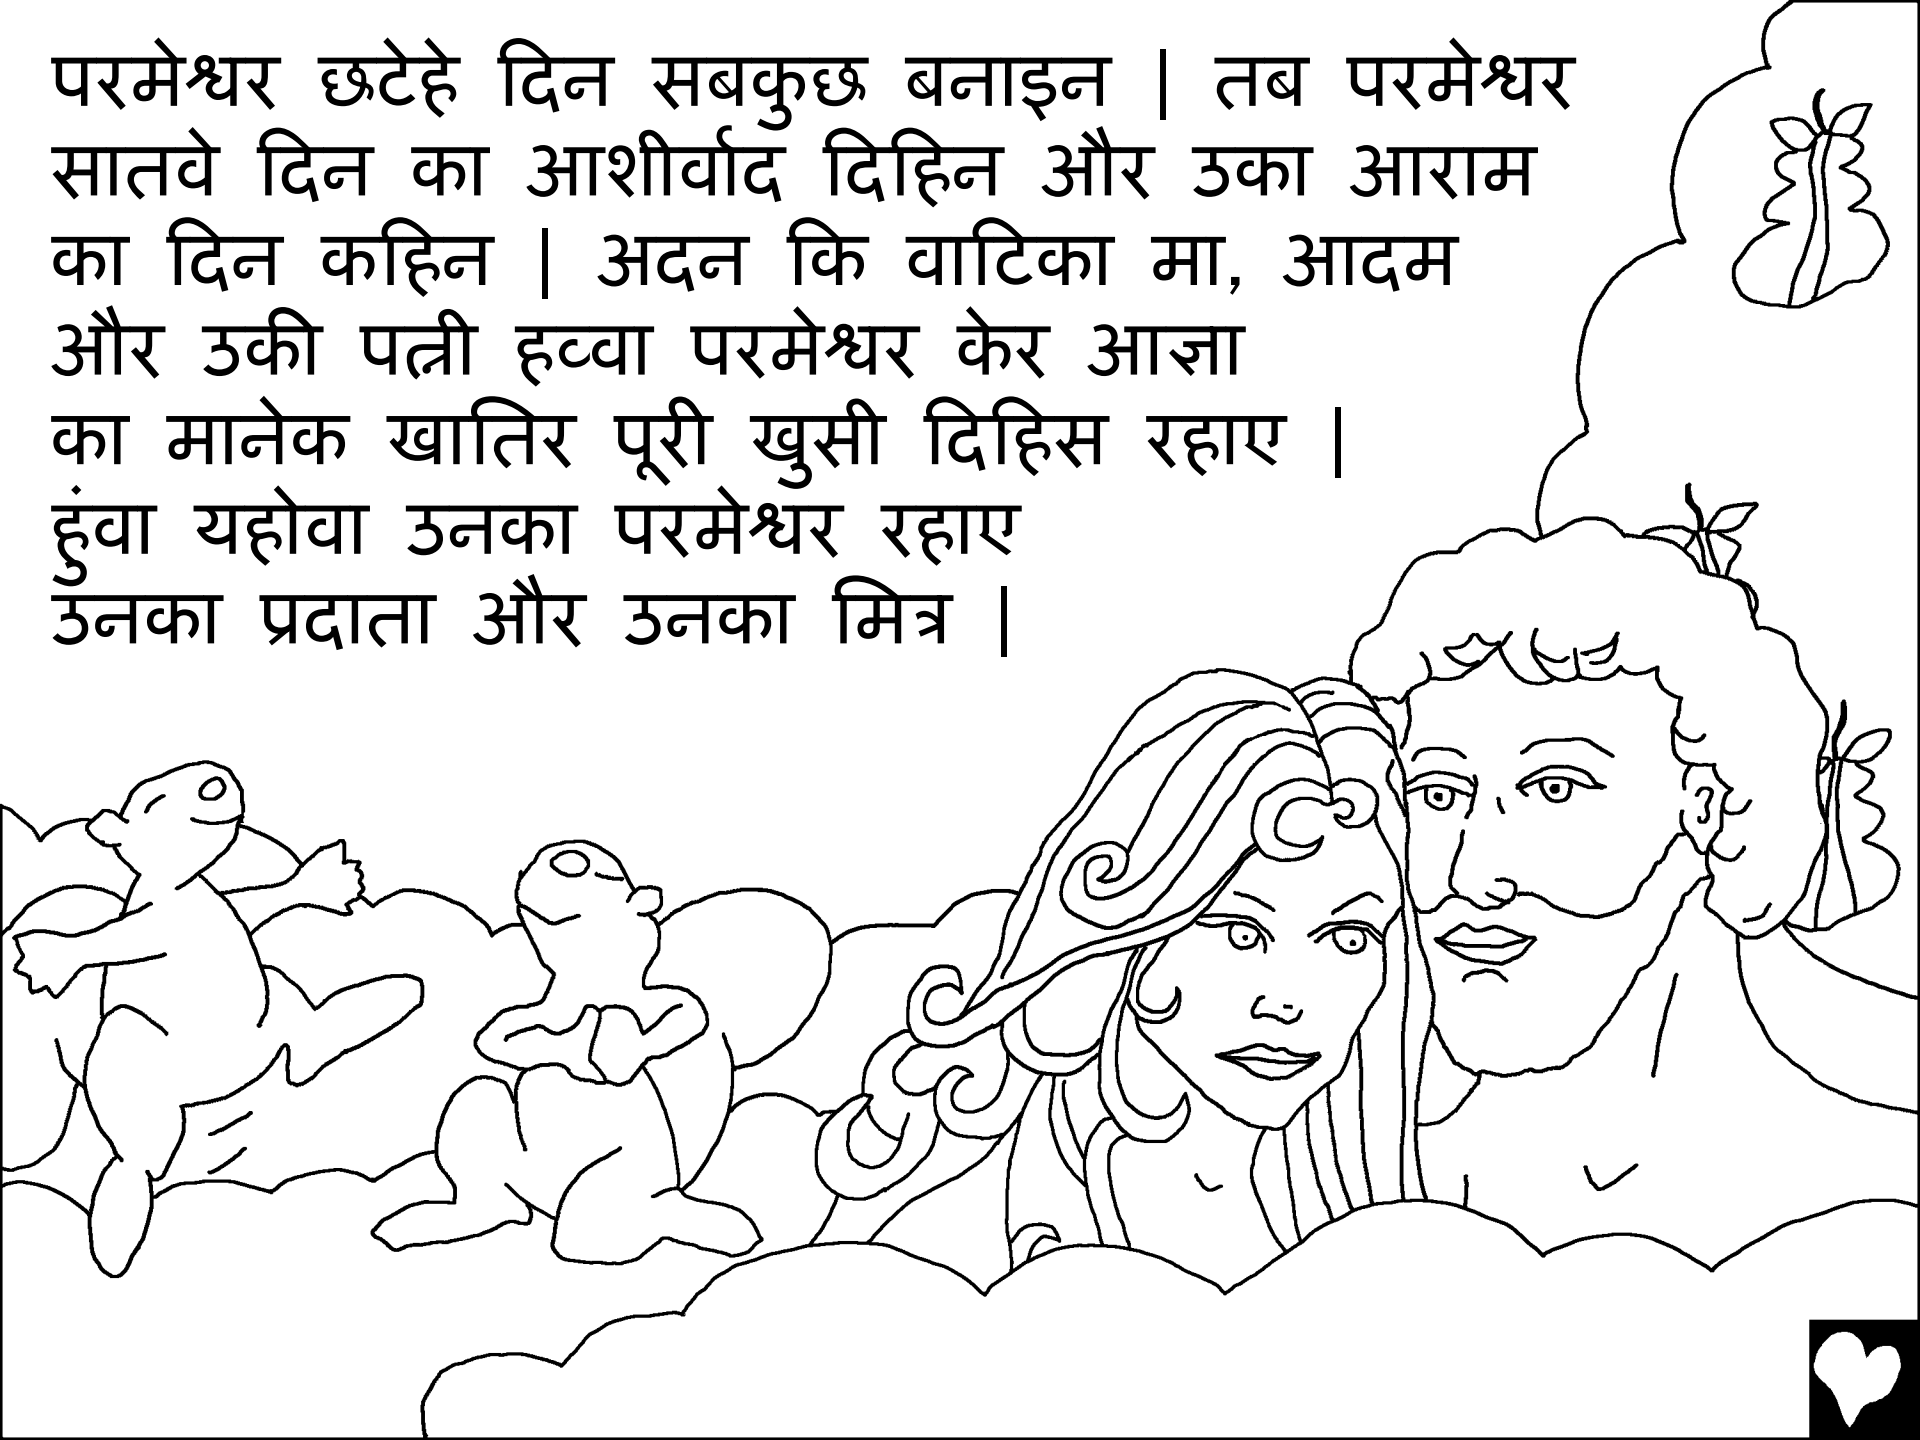 परमेश्वर छटेहे दिन सबकुछ बनाइन | तब परमेश्वर
सातवे दिन का आशीर्वाद दिहिन और उका आराम
का दिन कहिन | अदन कि वाटिका मा, आदम
और उकी पत्नी हव्वा परमेश्वर केर आज्ञा
का मानेक खातिर पूरी खुसी दिहिस रहाए |
हुंवा यहोवा उनका परमेश्वर रहाए
उनका प्रदाता और उनका मित्र |